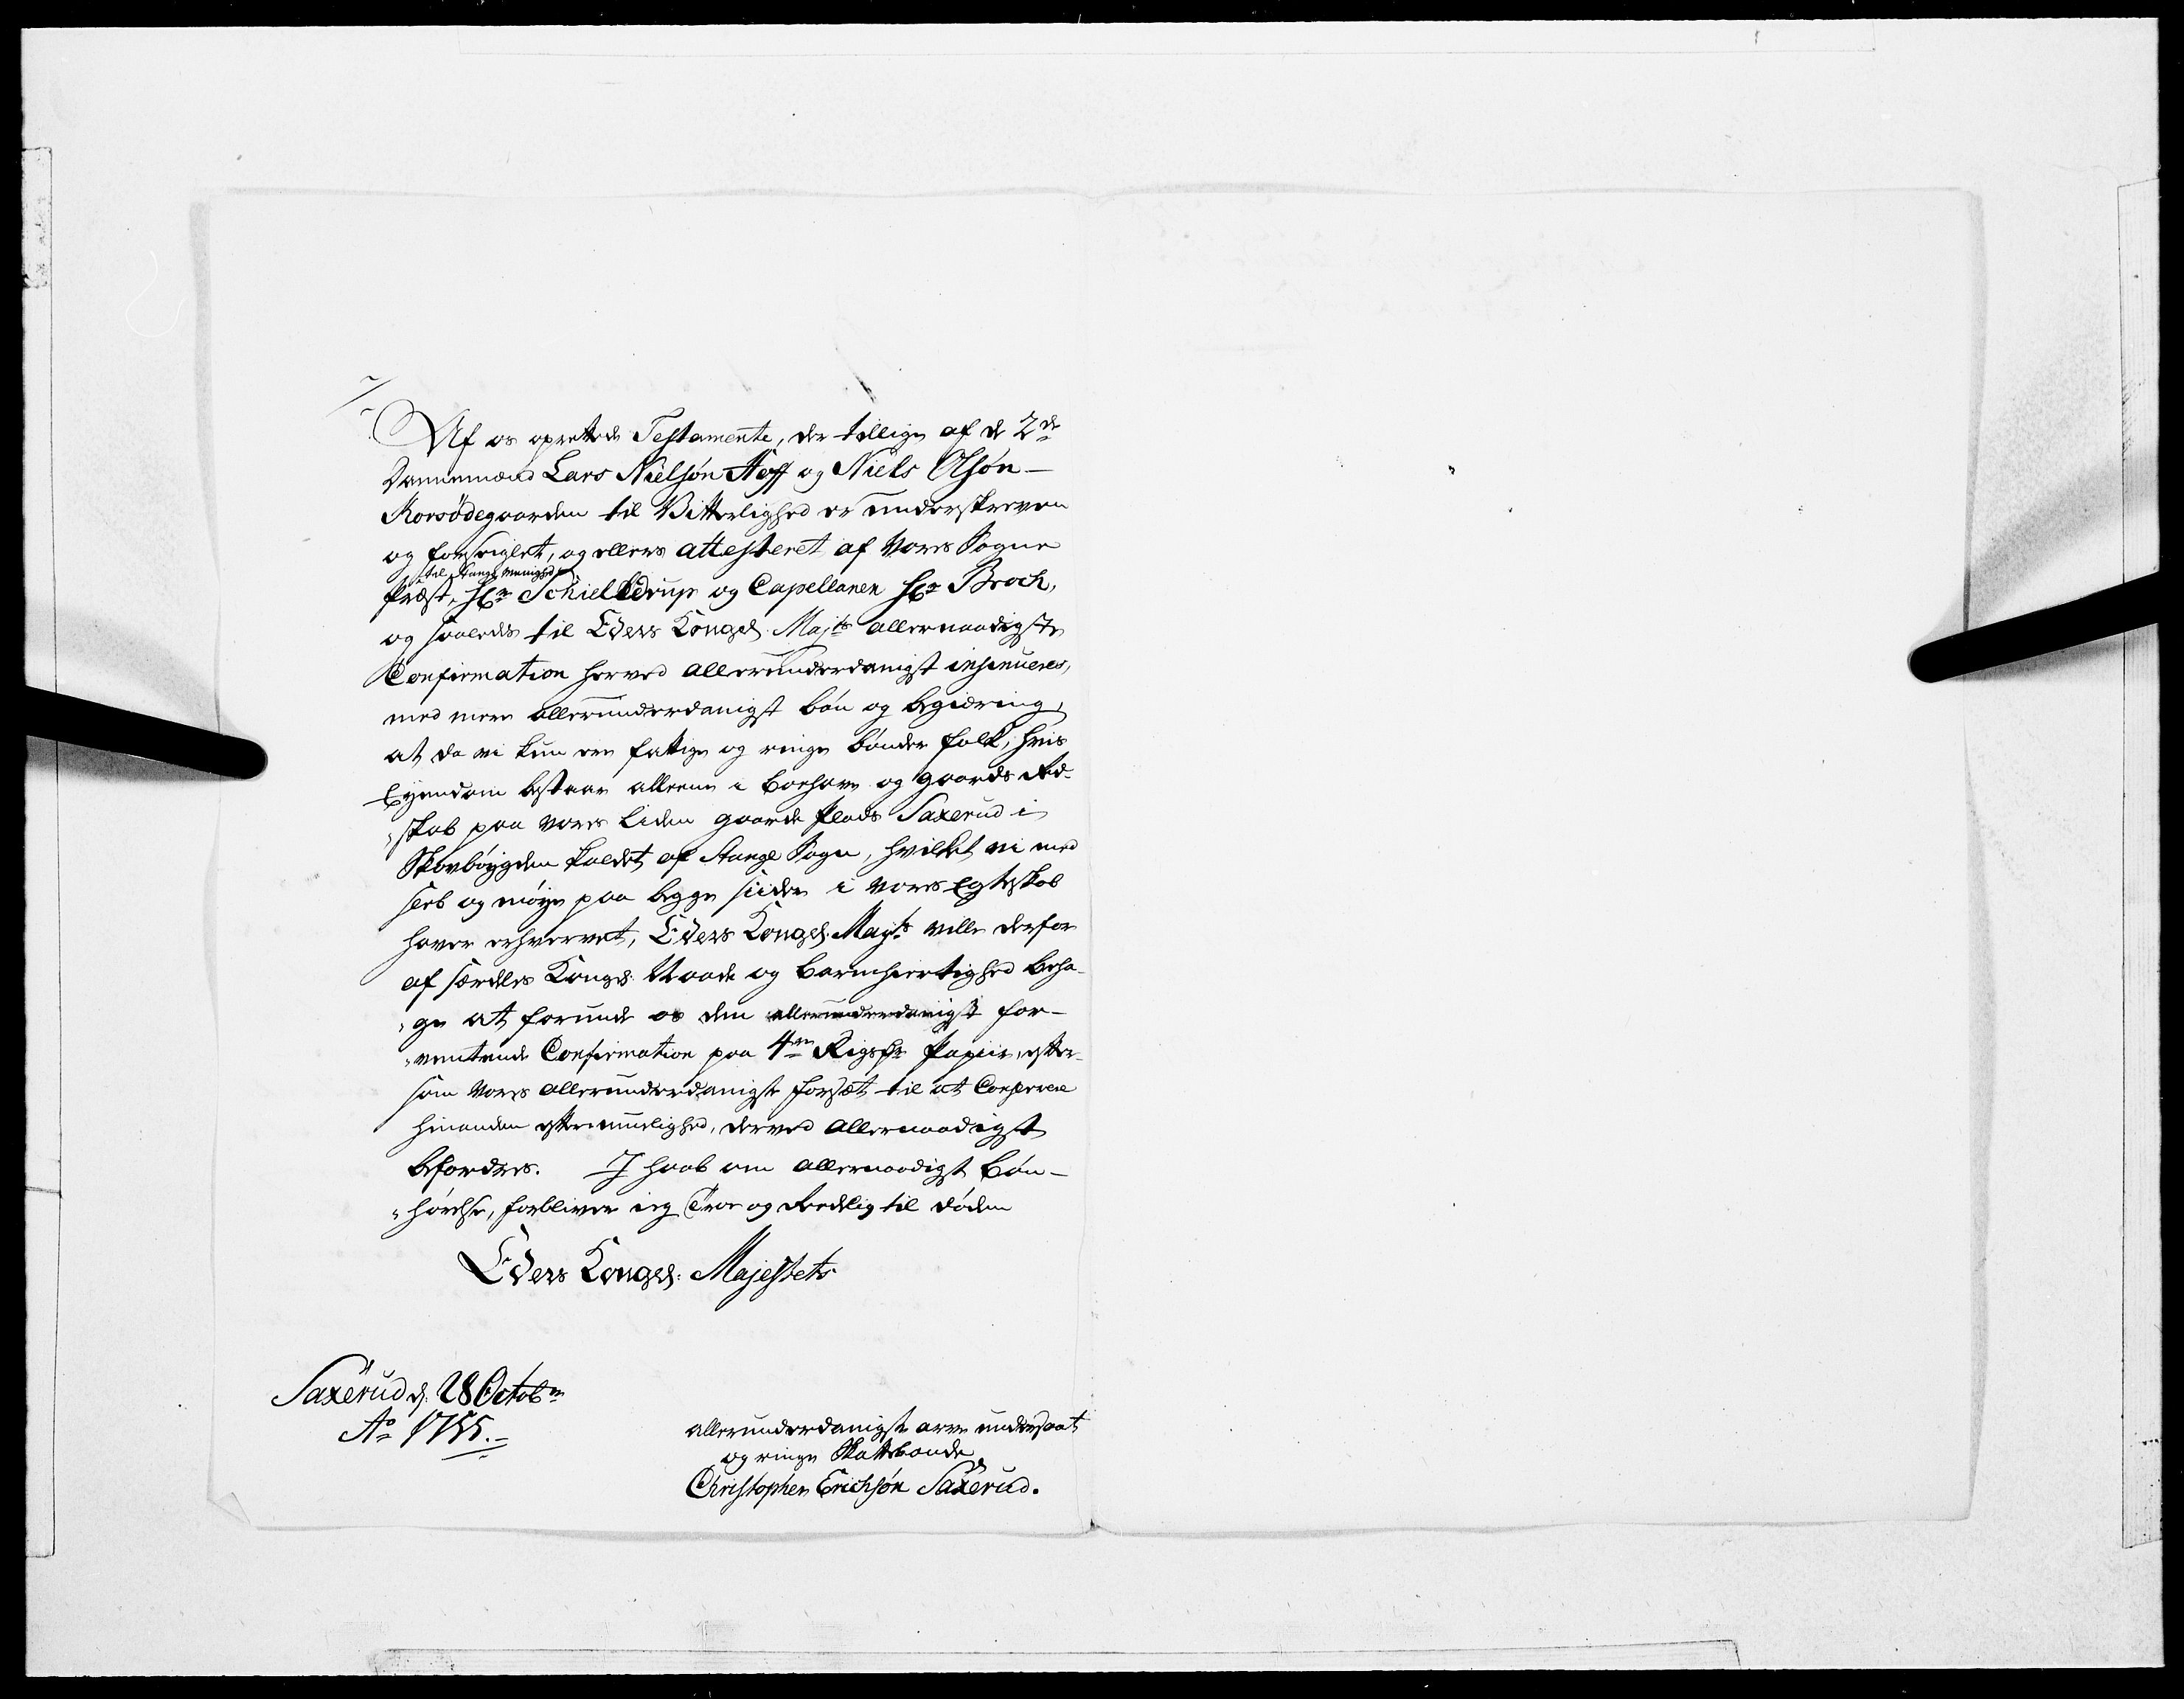 Af os oprettede Testamente, der tillige af de 2de
Dannemænd Lars Nielsøn Hoff og Niels Olsøn
Korsødegaarden til Vitterlighed er underskreven
og forseiglet, og ellers attesteret af Vores Sogne
til Stange Menighed
Præst, Hr Schielderup og Capellanen Hr Broch,
og saaledes til Eders Kongel. Majts allernaadigste
Confirmation herved allerunderdanigst insinueres,
med mere allerunderdanigst bøn og begiæring,
at da vi kun ere fattige og ringe bønder folk, hvis
Eyendom bestaar alleene i Boehave og Gaards Red¬
„skab paa vores liden gaarde plads Saxerud i
Skovbøygden kaldet af Stange Sogn, hvilket vi med
slæb og møye paa begge siider i vores Egteskab
haver erhvervet, Eders Kongel. Mayts ville derfor
af særdeles Kongel. Naade og Barmhiertighed beha¬
„ge at forunde os den allerunderdanigst for¬
„ventende Confirmation paa 4re Rigsdr Papiir, efter¬
som vores allerunderdanigste forsæt til at Conservere
hinanden efter muelighed, derved allernaadigst
befordres. I haab om allernaadigst Bøn¬
„hørelse, forbliver ieg Troe og Reedelig til døden
Eders Kongel: Majestets
Saxerud d. 28 Octobr
Ao 1755.
allerunderdanigste arve undersaat
og ringe Skattebonde
Christopher Erichsøn Saxerud.